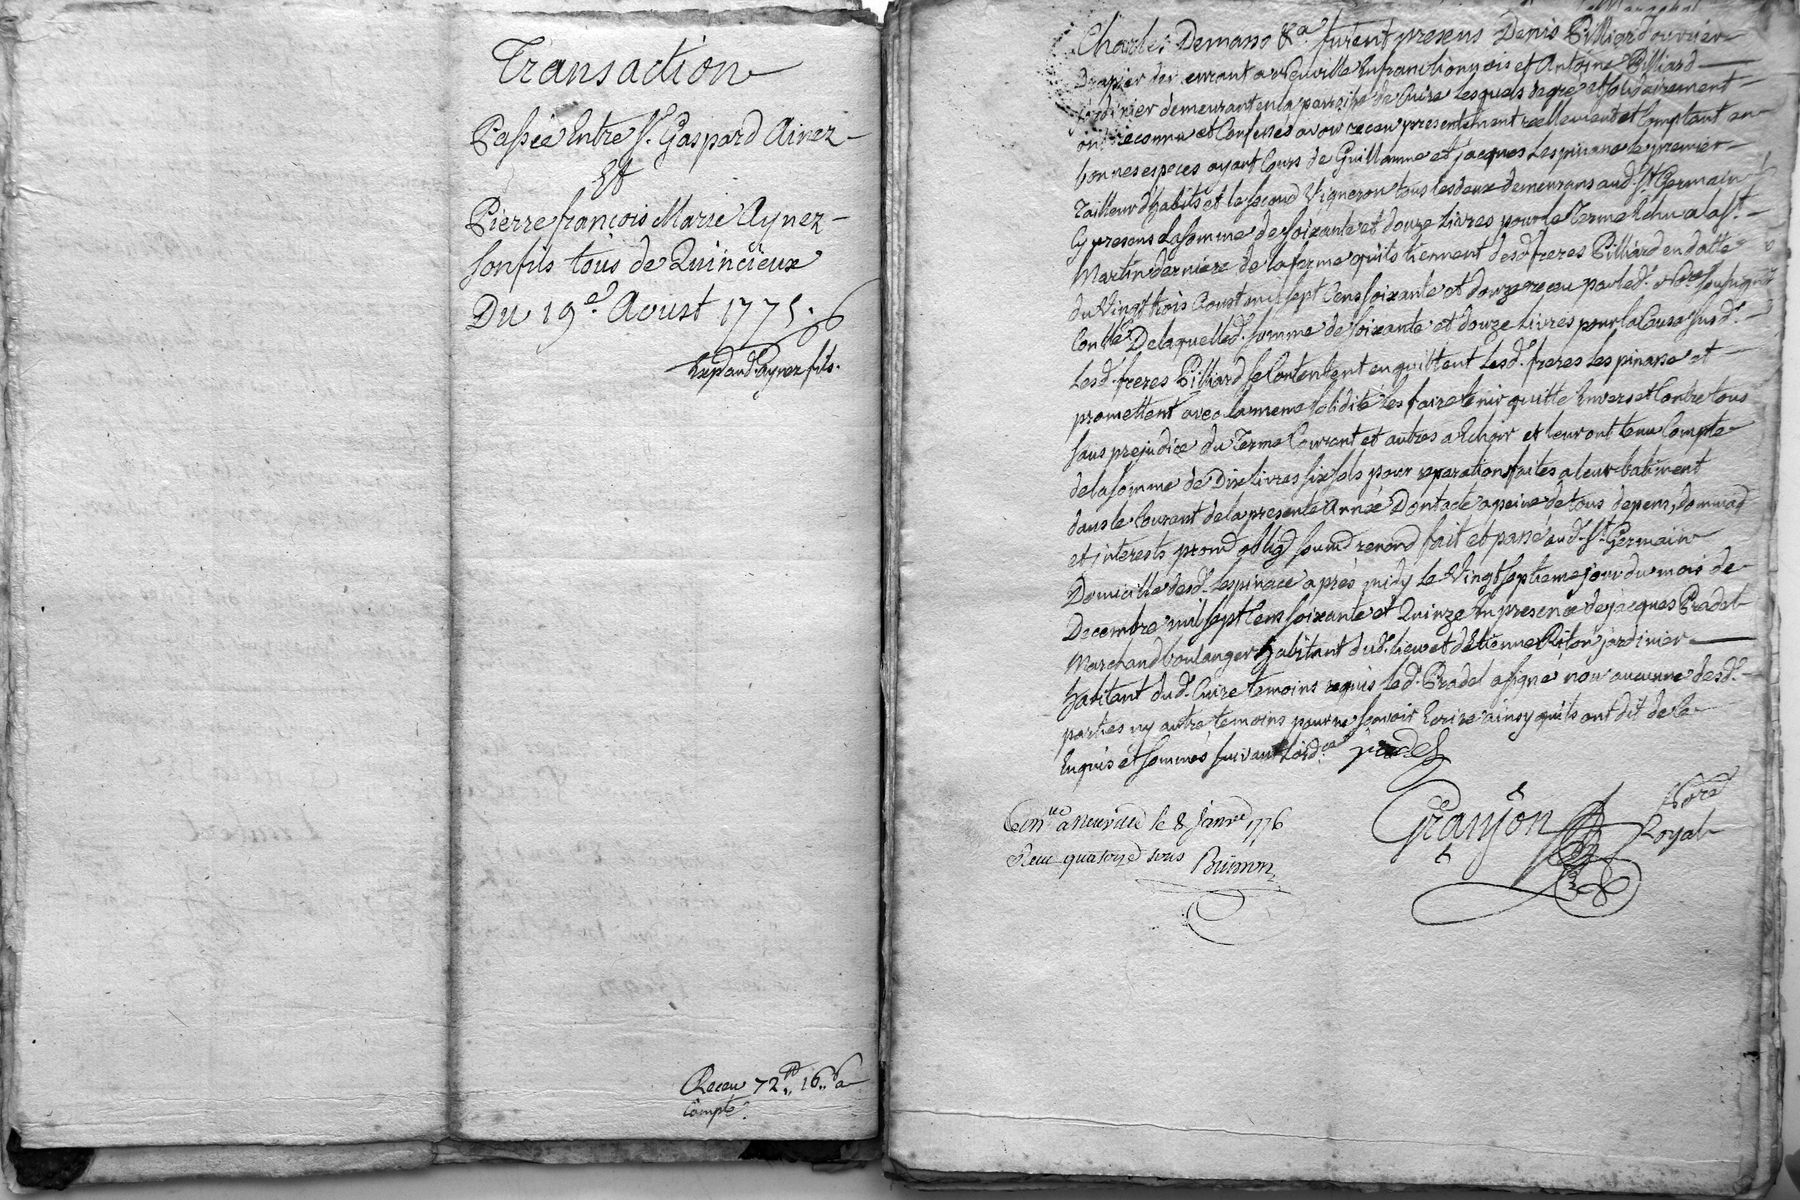 Transaction
Passée Entre Sr. Gaspard Ainez
Et
Pierre françois Marie Aynez
son fils tous de Quincieux
Du 19e. Aoust 1775.
Exp aud. Aynez fils.
Receu 72 ₶ 16 s a
Compte.
Charles Demasso &a. furent presens Denis Billiard ouvrier
drapier demeurant a Neuville en franclionnois et Antoine Billiard
demeurant en la parroisse de Cuire Lesquels de gré et solidairement
ont reconnu et Confessé avoir receu presentement réellement et Comptant en
bonnes especes ayant Cours de Guillaume et jacques Lespinasse le premier
Tailleur d'habits et le second Vigneron tous les deux demeurans aud. St Germain
Cy presens La somme de soixante et douze Livres pour le Terme Echu a la st.
Martin derniere de la ferme qu'ils tiennent desd. freres Billiard en datte
du Vingt trois Aoust mil sept Cens soixante et douze receu par led. Nore soussigné
Conllé. De laquelle d. somme de soixante et douze Livres pour la Cause susd.
Lesd. freres Billiard se Contentent en quittent Lesd. freres Lespinasse et
promettent avec la meme solidité Les faire tenir quitte Envers et Contre tous
sans prejudice du Terme Courant et autres a Echoir et leur ont tenu Compte
de la somme de Dix Livres six sols pour reparations faites a leur batiment
dans le Courant de la presente Année Dont acte a peine de tous depens, dommag
et interests prom oblig soumd renond fait et passé aud. St. Germain
Domicille desd. Lespinace après midy Le Vingt septieme jour du mois de
Decembre mil sept Cens soixante et Quinze En presence de jacques Pradel
Marchand boulanger habitant dud. lieu et d'Etienne Riton jardinier
habitant dud. Cuire temoins requis led. Pradel a signé non aucunne desd.
parties ny autre temoins pour ne sçavoir Ecrire ainsy quils ont dit de ce
Enquis et sommés suivant Lord.ce Pradel
Conlle a Neuville le 8 Janvr 1776
Receu quatorze sous
Granjon
Nore
Royal